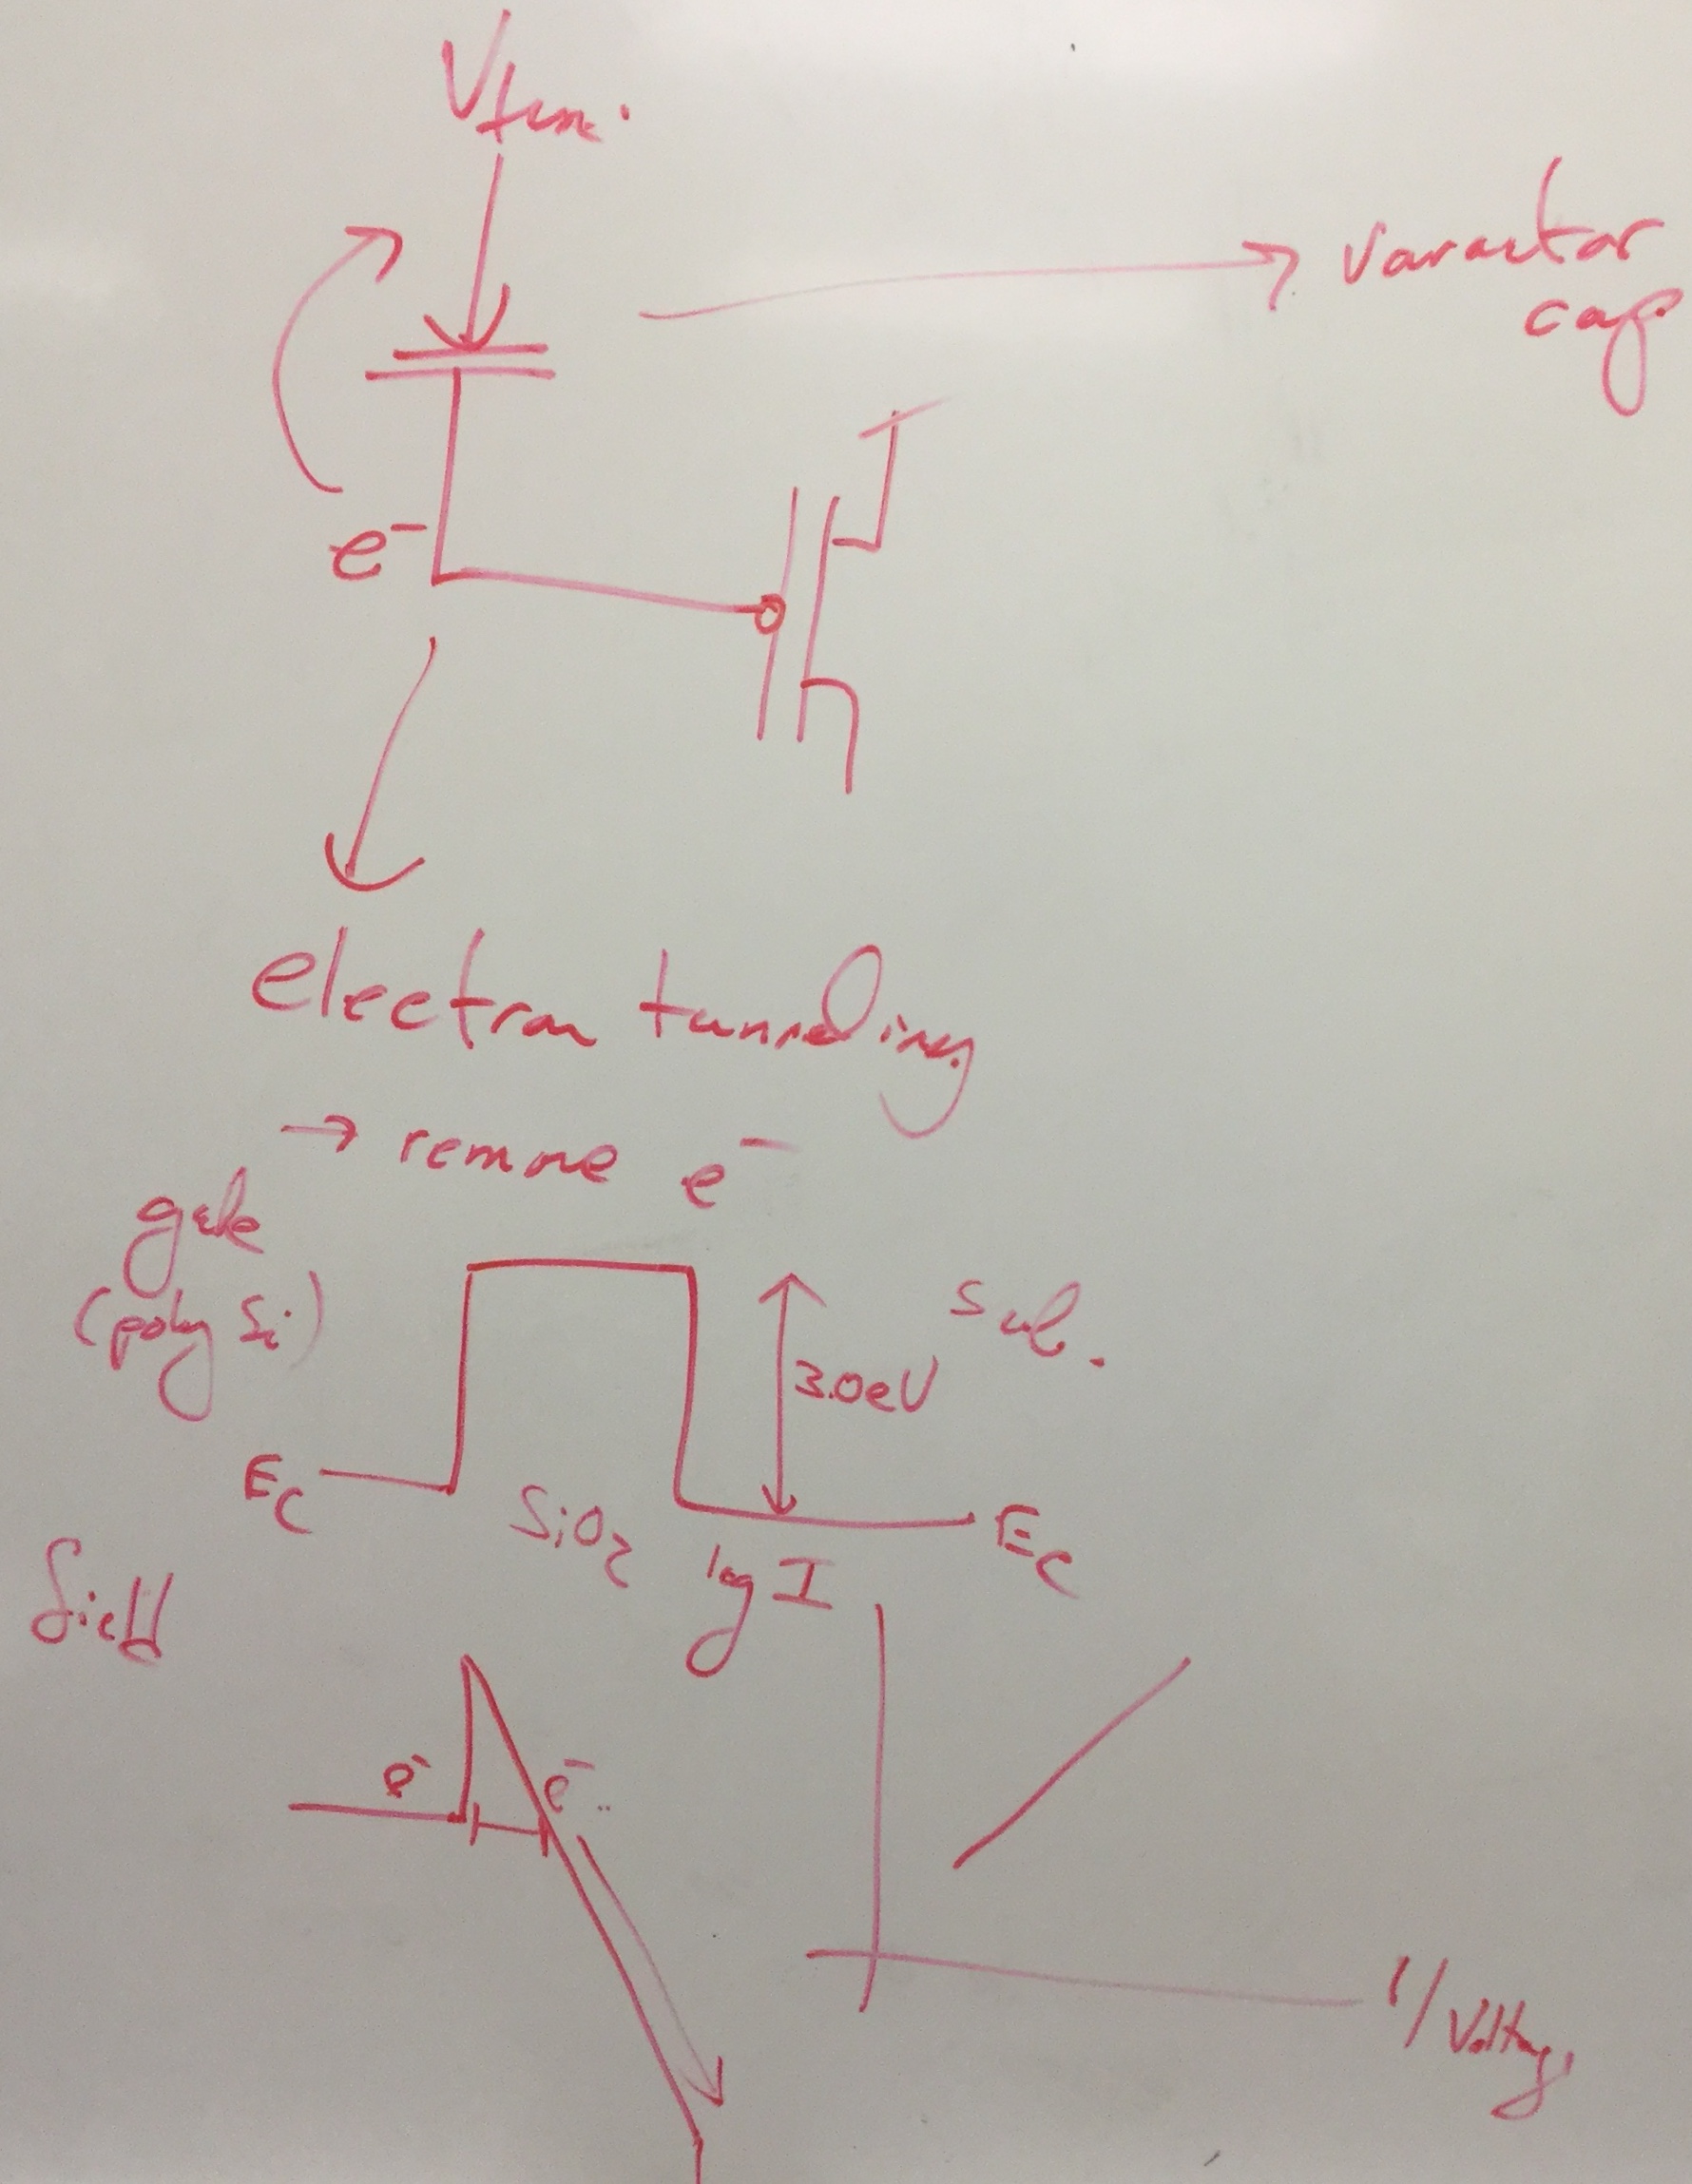 Vtun.
varactor
cap.
e⁻
electron tunneling
→ remove e⁻
gate
(poly Si)
Sub.
3.0eV
Ec
SiO₂
Ec
field
log I
e⁻
e⁻
1/Voltage